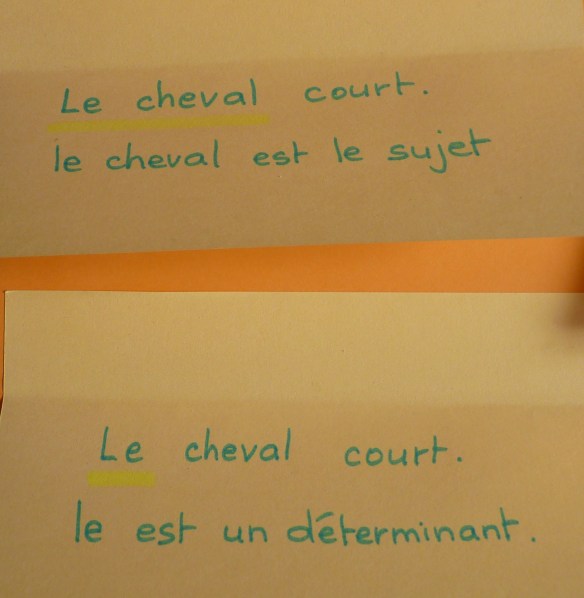 Le cheval court.
le cheval est le sujet
Le cheval court.
le est un déterminant.